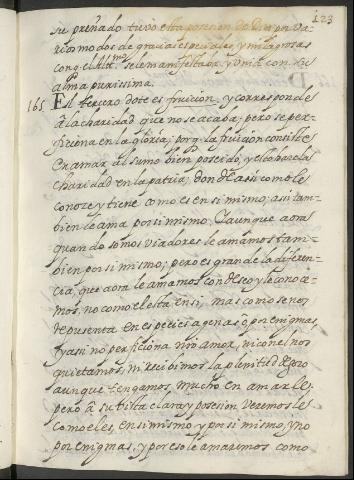 123
su preñado tuvo esta posesion de Dios en va-
rios modos de gracias especiales, y milagrosas
con q. el Altmo. se le manifestaba, y unia con su
alma purissima.
165 El tercero dote es fruicion, y corresponde
â la charidad que no se acaba, pero se per-
ficiona en la gloria; porq. la fruicion consiste
en amar al sumo bien poseido, y esto hace la
charidad en la patria; donde assi como le
conoze y tiene como es en si mismo; assi tam-
bien le ama por si mismo. I aunque aora
quando somos viadores le amamos tam-
bien por si mismo; pero es grande la diferen-
cia, que aora le amamos con deseo y le conoce-
mos, no como el esta en si, mas como se nos
representa en especies agenas ô por enigmas,
y assi no perficiona nro amor, ni con el nos
quietamos, ni recibimos la plenitud de gozo
aunque tengamos mucho en amarle;
pero â su vista clara y posesion veremosle
como el es en si mismo y por si mismo, y no
por enigmas, y por eso le amaremos como